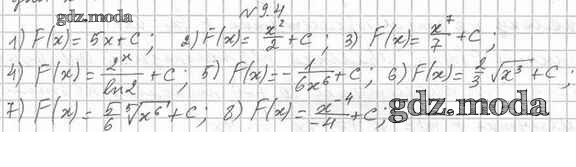 gdz.moda
№9.4
1) F(x) = 5x + C; 2) F(x) = x²/2 + C; 3) F(x) = x⁷/7 + C;
4) F(x) = 2ˣ/ln2 + C; 5) F(x) = -1/(6x⁶) + C; 6) F(x) = 2/3 √x³ + C;
7) F(x) = 5/6 ⁵√x⁶ + C; 8) F(x) = x⁻⁴/-4 + C;
gdz.moda